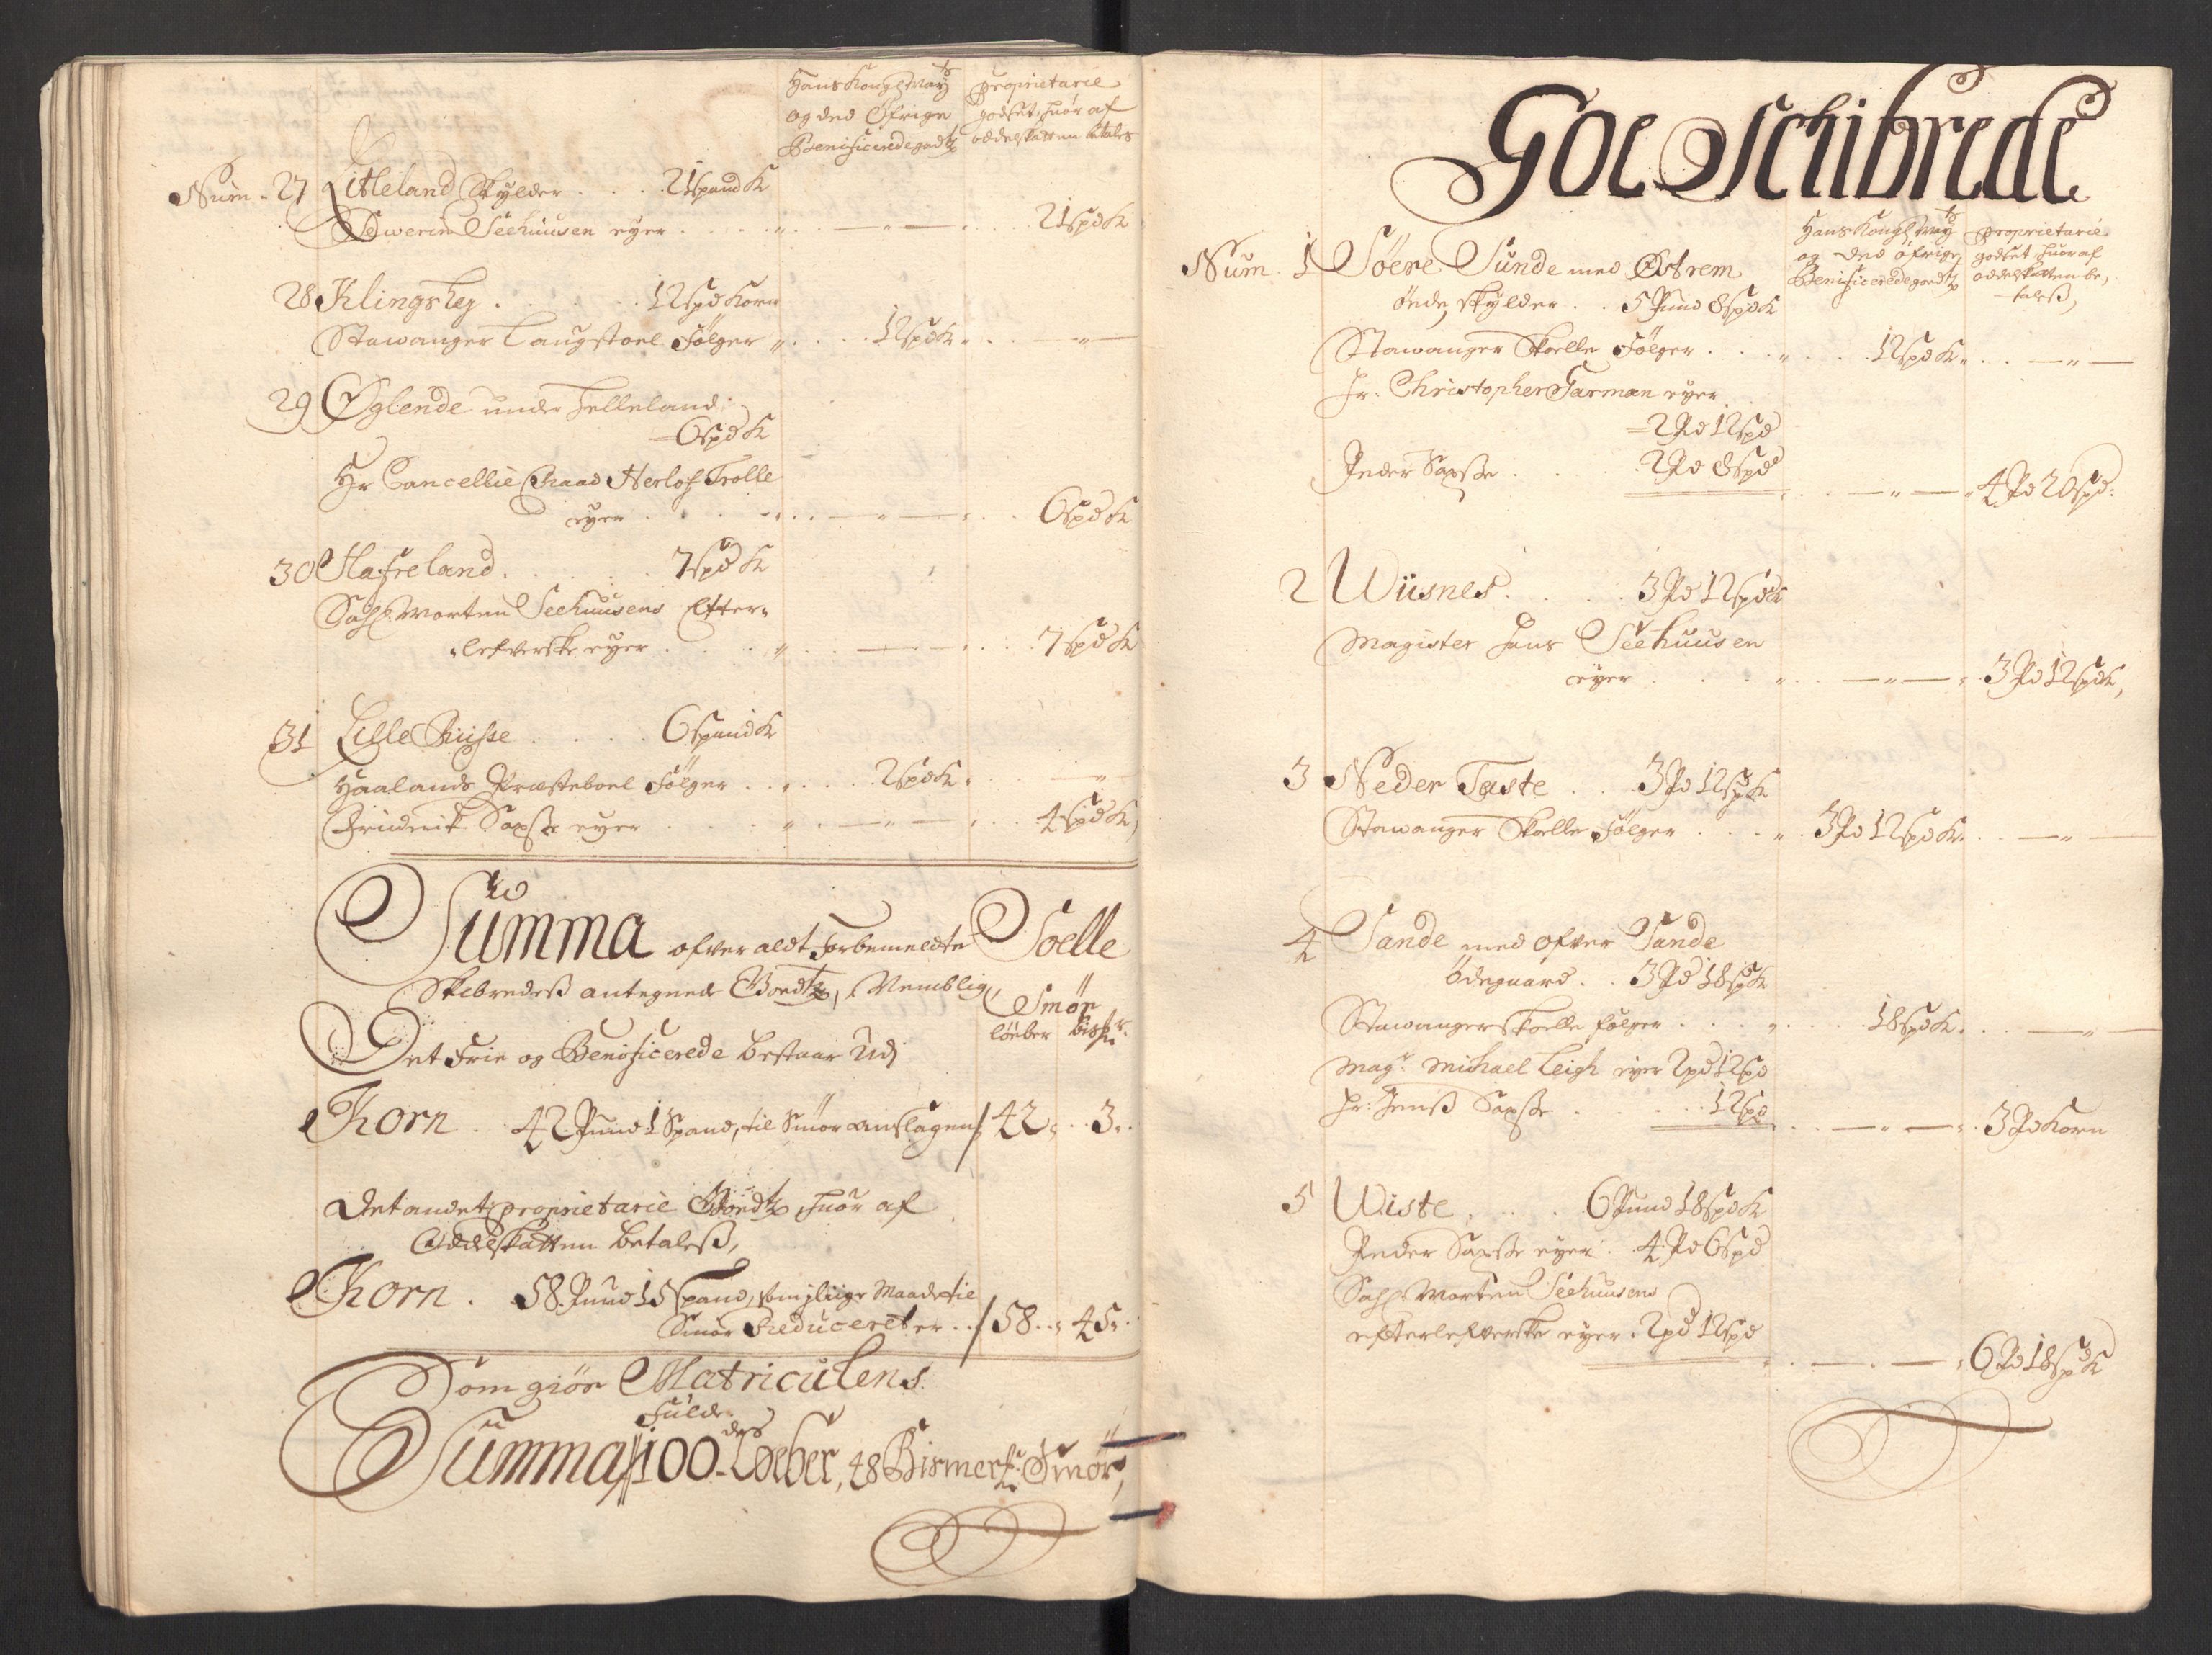 Hans Kongl May.ts
og deß Øfrige
Benificerede godtz
Proprietarie
godtzet, huor af
oddelskatten betales
Num. 27 Litleland Skylder . . . 21 spand K
Sewerin Seehuusen eyer . . . . " . . — " — . . . . 21 spd K
28 Klingshey . . . . . 12 spd Korn
Stawanger Laugstoel Følger " . . . . 12 spd K " . . — " —
29 Øglende under Helleland
6 spd K
Hr Cancellie Raad Herlof Trolle
eyer . . . . . . . — " — . . . 6 spd K
30 Hafreland . . . . . 7 spd K
Sahl. Morten Seehuusens Efter=
=lefverske eyer . . . . " . . — . — . . . . 7 spd K
31 Lille Riisse . . . . 6 spand K
Haalands Præsteboel Følger . . . . . . 2 spd K . . . — " —
Friderik Saxsse eyer . . . . " . — " — . . . 4 spd K
Summa ofver aldt Forbemeldte Soelle
Skibredeß antegnede Goedtz, Nemblig,
Smör
løeber Bism
Det Frie og Benificerede bestaar Udj
Korn . 42 Pund 1 Spand, til Smör anslagen / 42 . . 3 . .
Det andet proprietarie Goedtz, huor af
Oddelskatten betaleß,
Korn . 58 Pund 15 Spand, som j liige Maade til
Smör Reduceret er . . / 58 . . 45 . .
Som giør Matriculens
Fulde
Summa // 100 Løeber, 48 Bismer Smör,
Goe Schibrede
Hans Kongl May.ts
og deß øfrige
Benificerede goedtz
Proprietarie
godtzet huor af
oddelskatten be,
taleß,
Num. 1 Söere Sunde med Østrem
öede, skylder . . 5 Pund 8 spd K
Stawanger Skoelle Følger . . . " . . . . 12 spd K " . . — " —
Hr: Christopher Garman eyer
2 Pd 12 spd
Peder Saxsse . . . . 2 Pd 8 spd . . . — " — " 4 Pd 20 spd.
2 Wiisnes . . . . . 3 Pd 12 spd K
Magister Hans Seehuusen
eyer . . . . " . . — " — " . 3 Pd 12 spd K,
3 Neder Taste . . . 3 Pd 12 spd K
Stawanger Skoelle Følger . . . " . 3 Pd 12 spd K . . . — " —
4 Sande med ofver Sande
ödegaard . . 3 Pd 18 spd K
Stawanger Skoelle følger . . . . " . . . . 18 spd K . . . — " —
Mag.r Michael Leigh eyer 2 pd 12 spd
Hr: Jenß Saxsse . . . . . . 12 spd . . . — " — " . 3 Pd Korn
5 Wiste . . . . 6 Pund 18 spd K
Peder Saxsse eyer . 4 Pd 6 spd
Sahl. Morten Seehuusens
efterlefverske eyer . 2 pd 12 spd . . . — . — " 6 Pd 18 spd K